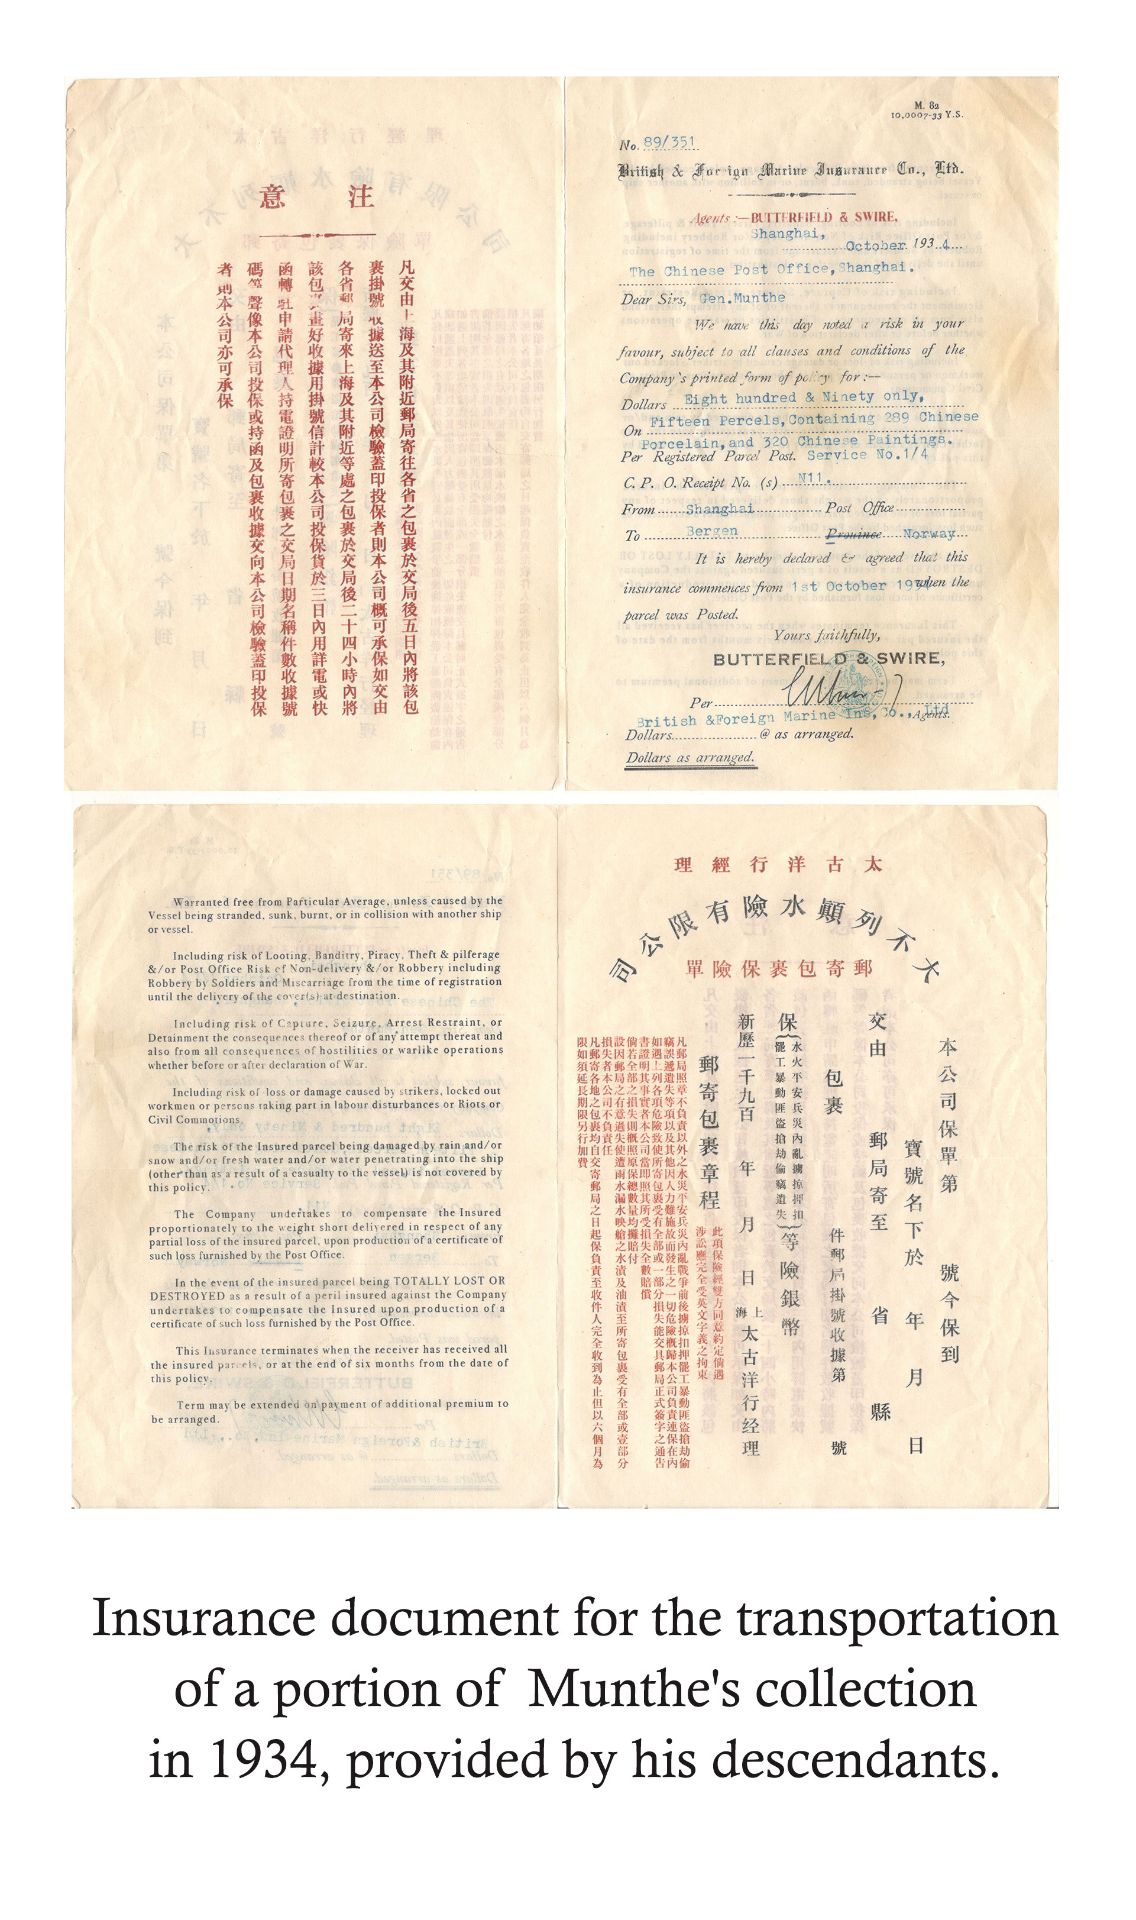 意 注
凡交由上海及其附近郵局寄往各省之包裹於交局後五日內將該包
裹掛號收據送至本公司檢驗蓋印投保者則本公司概可承保如交由
各省郵局寄來上海及其附近等處之包裹於交局後二十四小時內將
該包裹畫好收據用掛號信計較本公司投保貨於三日內用詳電或快
函轉駐申請代理人持電證明所寄包裹之交局日期名稱件數收據號
碼等聲像本公司投保或持函及包裹收據交向本公司檢驗蓋印投保
者則本公司亦可承保
M. 82
10.0007-33 Y.S.
No. 89/351
British & Foreign Marine Insurance Co., Ltd.
Agents :—BUTTERFIELD & SWIRE,
Shanghai,
October 1934
The Chinese Post Office, Shanghai.
Dear Sirs, Gen.Munthe
We have this day noted a risk in your
favour, subject to all clauses and conditions of the
Company's printed form of policy for :—
Dollars Eight hundred & Ninety only,
On Fifteen Percels, Containing 289 Chinese
Porcelain, and 320 Chinese Paintings.
Per Registered Parcel Post. Service No.1/4
C. P. O. Receipt No. (s) N11.
From Shanghai Post Office
To Bergen Province Norway
It is hereby declared & agreed that this
insurance commences from 1st October 1934 when the
parcel was Posted.
Yours faithfully,
BUTTERFIELD & SWIRE,
Per
British &Foreign Marine Ins, Co., Ltd Agents.
Dollars @ as arranged.
Dollars as arranged.
Warranted free from Particular Average, unless caused by the
Vessel being stranded, sunk, burnt, or in collision with another ship
or vessel.
Including risk of Looting, Banditry, Piracy, Theft & pilferage
&/or Post Office Risk of Non-delivery &/or Robbery including
Robbery by Soldiers and Miscarriage from the time of registration
until the delivery of the cover(s) at destination.
Including risk of Capture, Seizure, Arrest Restraint, or
Detainment the consequences thereof or of any attempt thereat and
also from all consequences of hostilities or warlike operations
whether before or after declaration of War.
Including risk of loss or damage caused by strikers, locked out
workmen or persons taking part in labour disturbances or Riots or
Civil Commotions.
The risk of the Insured parcel being damaged by rain and/or
snow and/or fresh water and/or water penetrating into the ship
(other than as a result of a casualty to the vessel) is not covered by
this policy.
The Company undertakes to compensate the Insured
proportionately to the weight short delivered in respect of any
partial loss of the insured parcel, upon production of a certificate of
such loss furnished by the Post Office.
In the event of the insured parcel being TOTALLY LOST OR
DESTROYED as a result of a peril insured against the Company
undertakes to compensate the Insured upon production of a
certificate of such loss furnished by the Post Office.
This Insurance terminates when the receiver has received all
the insured parcels, or at the end of six months from the date of
this policy.
Term may be extended on payment of additional premium to
be arranged.
理經行洋古太
司公限有險水顚列不大
單險保裹包寄郵
本公司保單第 號今保到
寶號名下於 年 月 日
交由 郵局寄至 省 縣
包裹 件郵局掛號收據第 號
保
水火平安兵災內亂擄掠押扣
罷工暴動匪盜搶劫偷竊遺失
等險銀幣
新歷一千九百 年 月 日
上海太古洋行经理
郵寄包裹章程
此項保險經雙方同意約定倘遇
涉訟應完全受英文字義之拘束
凡郵局照章不負責以外之水災平安兵災內亂戰爭前後擄掠扣押罷工暴動匪盜搶劫偷
竊誤遞遺失等項以及其他因人力難施故而發生之一切危險概歸本公司負責連保在內
如遇上列各項危險致使所寄包裹受有全部或一部分損失能交具郵局正式簽字之通告
書證明其事實者本公司當即照其所受損失全數賠償
倘若全部之損失則概照原保總數量均攤賠付
設因郵局之有意過失使遭雨水漏水映艙之水漬及油漬至所寄包裹受有全部或壹部分
損失者本公司不負責任
凡郵寄各地之包裹均自交寄郵局之日起保負責至收件人完全收到為止但以六個月為
限如須延長期限另行加費
Insurance document for the transportation
of a portion of Munthe's collection
in 1934, provided by his descendants.